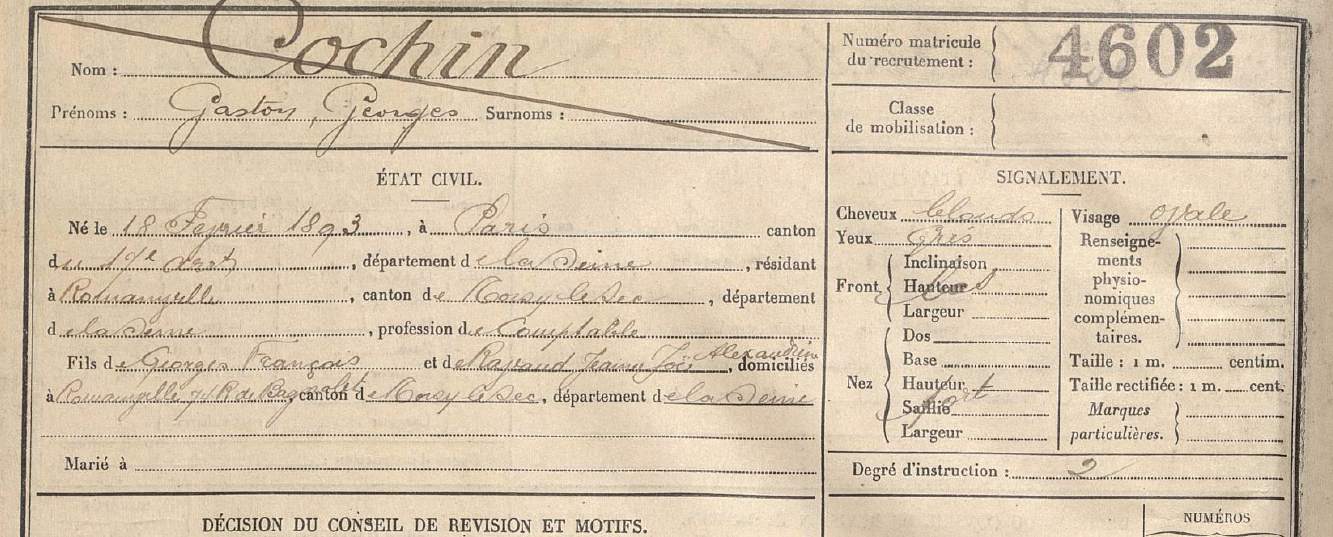 Nom : Cochin
Prénoms : Gaston, Georges Surnoms :
Numéro matricule
du recrutement : 4602
Classe
de mobilisation :
ÉTAT CIVIL.
Né le 18 Fevrier 1893, à Paris canton
du 17e arrt, département de la Seine, résidant
à Romainville, canton de Noisy le Sec, département
de la Seine, profession de Comptable
Fils de Georges François et de Jeanne Alexandrine, domiciliés
à Romainville R de Bagnolet canton de Noisy le Sec, département de la Seine
Marié à
SIGNALEMENT.
Cheveux blonds
Yeux Gris
Front Inclinaison
Hauteur bas
Largeur
Nez Dos
Base
Hauteur fort
Saillie
Largeur
Visage ovale
Renseigne-
ments
physio-
nomiques
complémen-
taires.
Taille : 1 m. centim.
Taille rectifiée : 1 m. cent.
Marques
particulières.
Degré d'instruction : 2
DÉCISION DU CONSEIL DE REVISION ET MOTIFS.
NUMÉROS